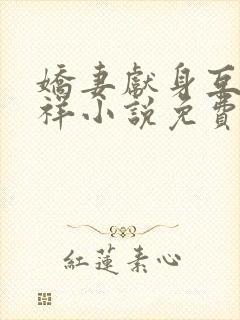 嬌妻獻身互
祥小說免費
紅蓮素心